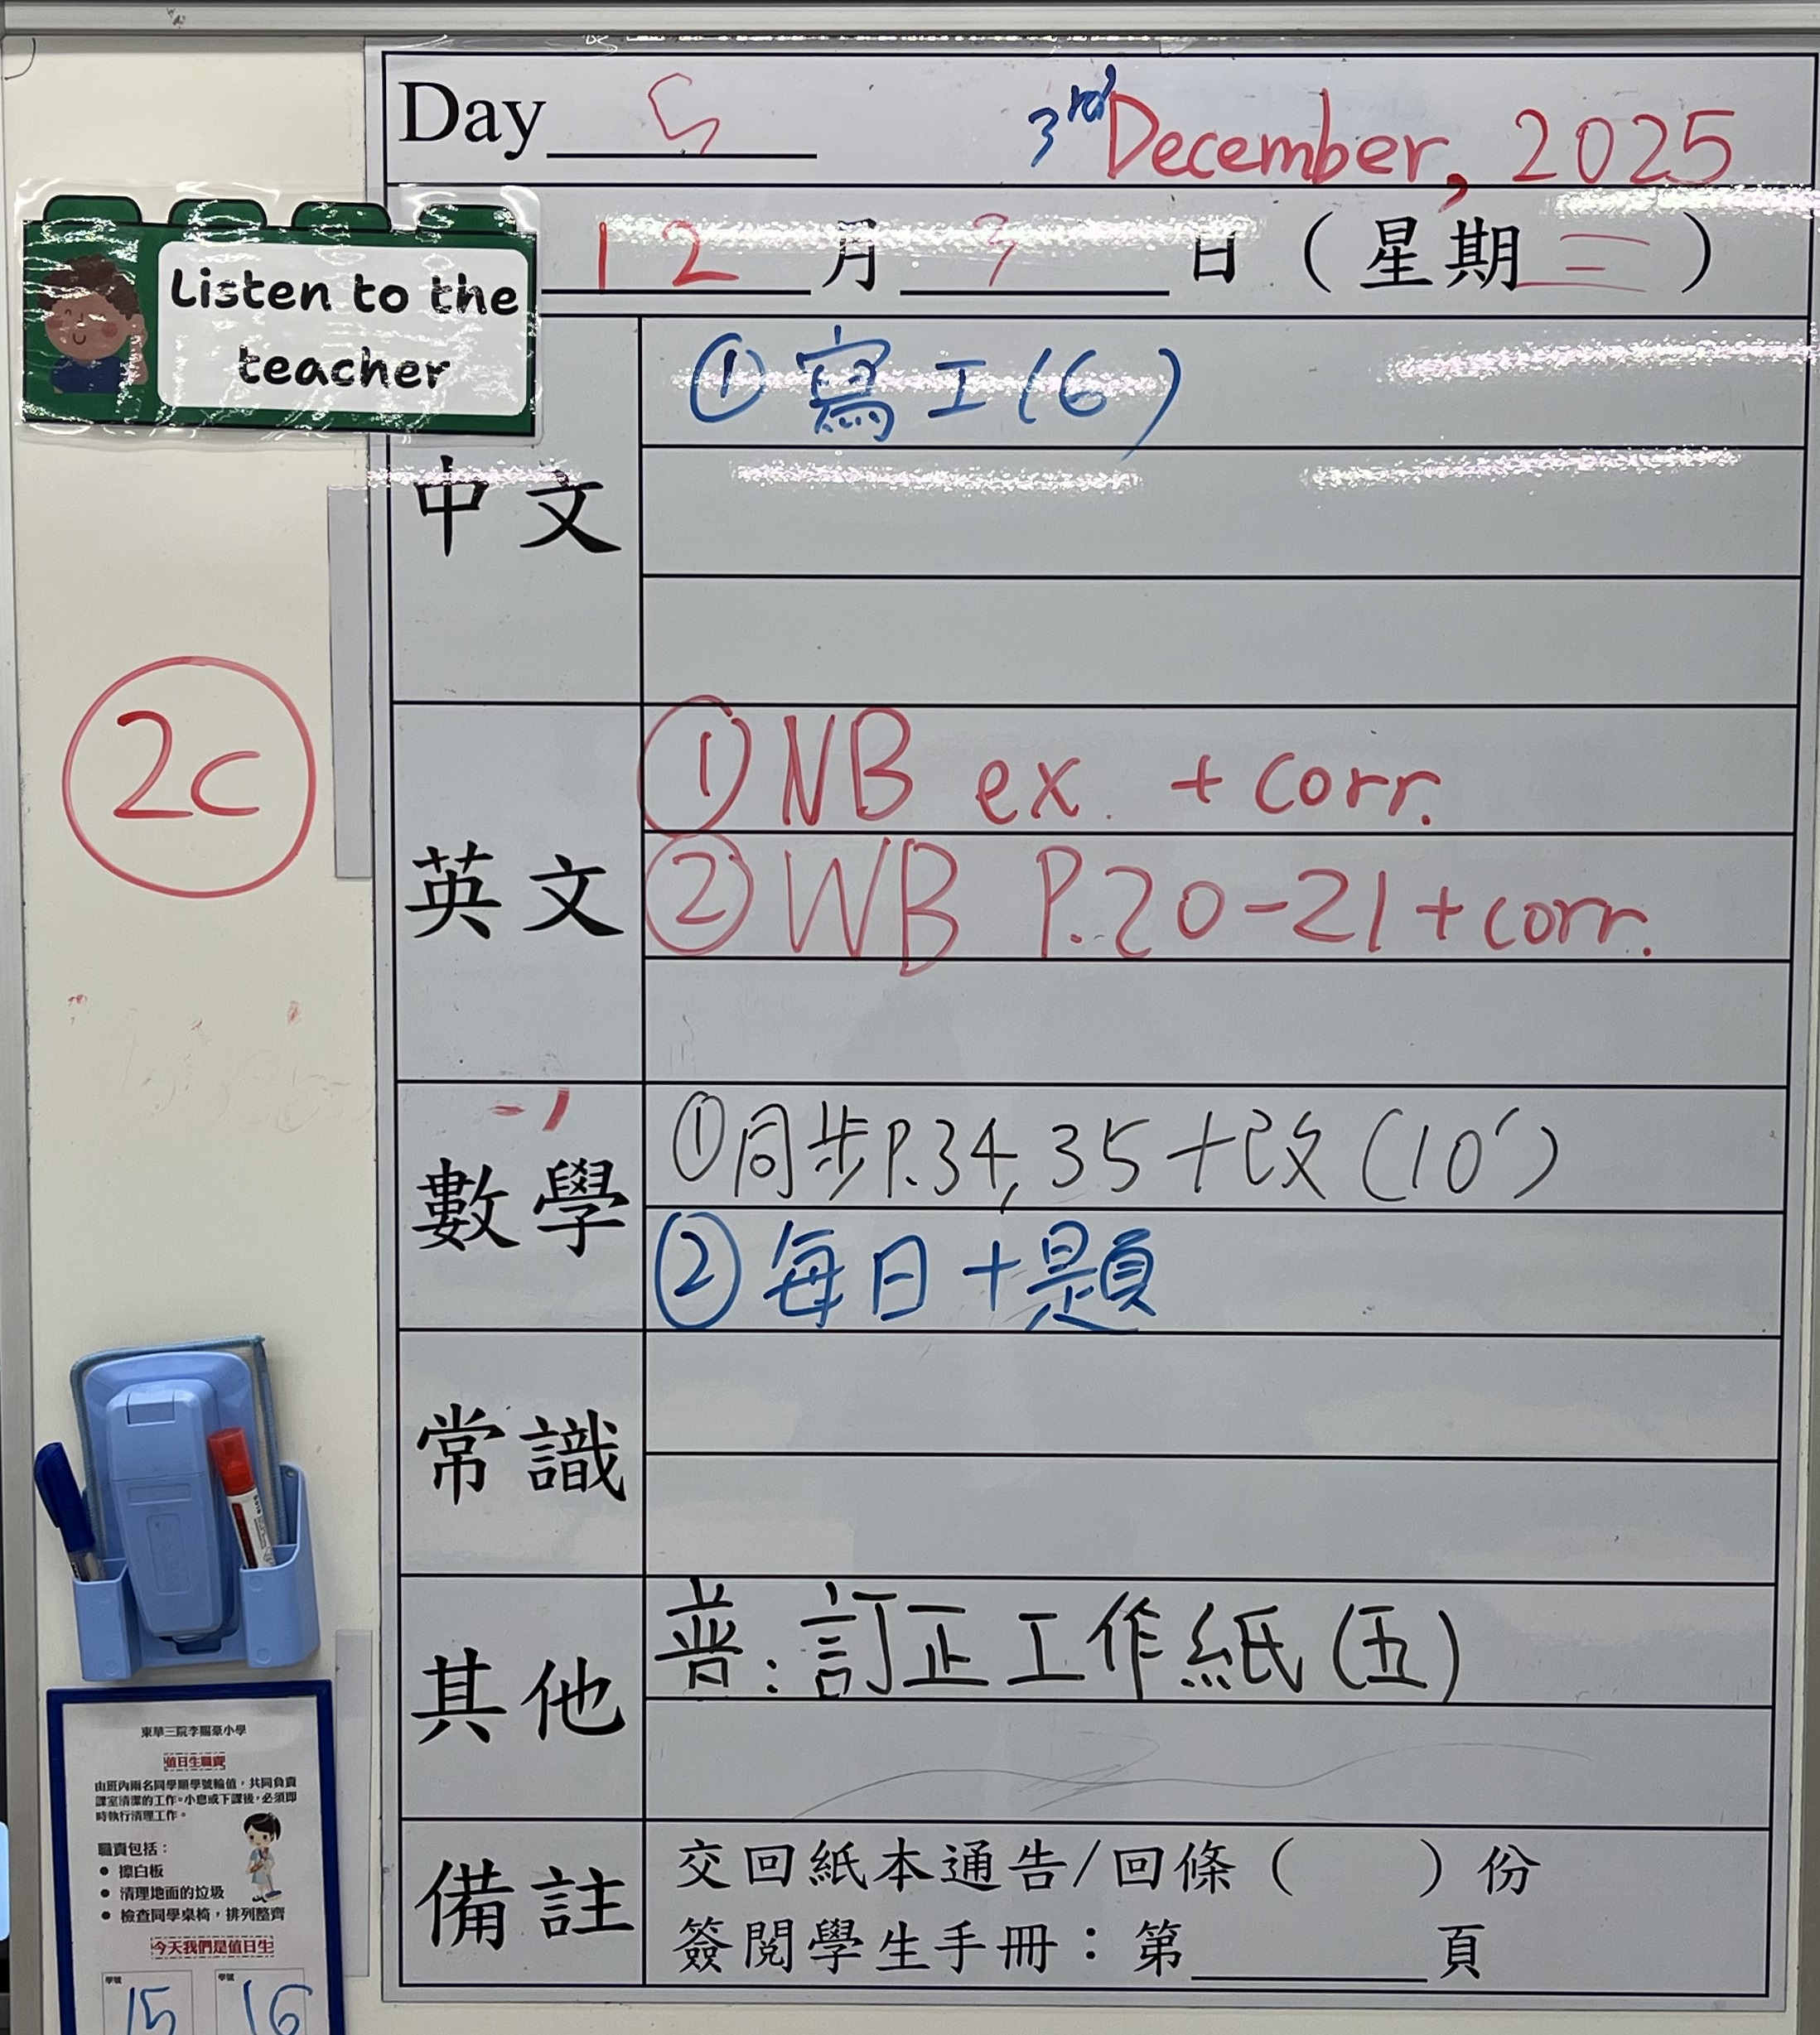 Day 5 3rd December, 2025
12月3日（星期三）
Listen to the
teacher
中文
①寫工(6)
2C
英文
①NB ex. + corr.
②WB P.20-21 + corr.
數學
①同步P.34, 35+改(10')
②每日十題
常識
其他
普:訂正工作紙(五)
備註
交回紙本通告/回條（ ）份
簽閱學生手冊：第____頁
東華三院李賜豪小學
值日生職責
由班內兩名同學順學號輪值，共同負責
課室清潔的工作。小息或下課後，必須即
時執行清理工作。
職責包括：
● 擦白板
● 清理地面的垃圾
● 檢查同學桌椅，排列整齊
今天我們是值日生
學號 學號
15 16